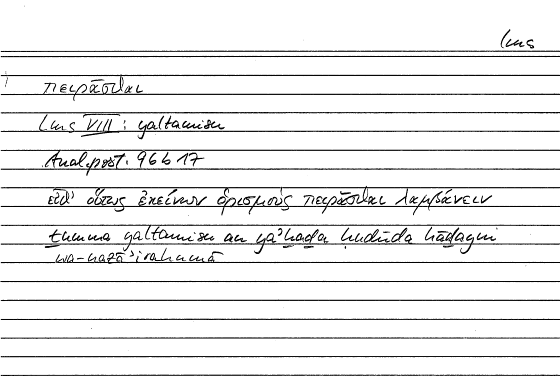 lms
πειρᾶσθαι
lms VIII : yaltamisu
Anal.post. 96 b 17
εἶθ' οὕτως ἐκείνων ὁρισμοὺς πειρᾶσθαι λαμβάνειν
ṯumma yaltamisu an ya'ḫuḏa ḥudūda hāḏayni
wa-naẓā'irahumā